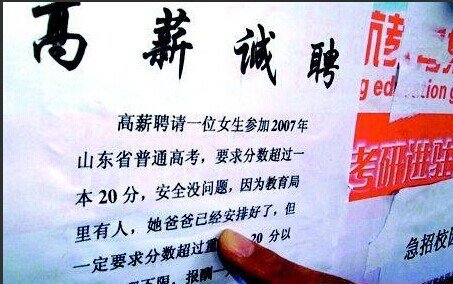 高薪诚聘
高薪聘请一位女生参加2007年
山东省普通高考，要求分数超过一
本20分，安全没问题，因为教育局
里有人，她爸爸已经安排好了，但
一定要求分数超过重 20分以
不限，报酬一
g education g
考研进驻
急招校园